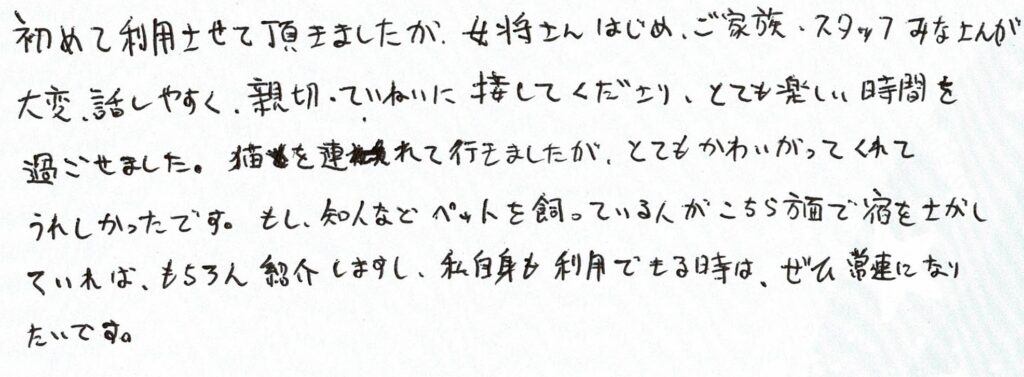 初めて利用させて頂きましたが、女将さんはじめ、ご家族・スタッフみなさんが
大変、話しやすく、親切・ていねいに接してくださり、とても楽しい時間を
過ごせました。猫を連れて行きましたが、とてもかわいがってくれて
うれしかったです。もし、知人などペットを飼っている人がこちら方面で宿をさがし
ていれば、もちろん紹介しますし、私自身も利用できる時は、ぜひ常連になり
たいです。